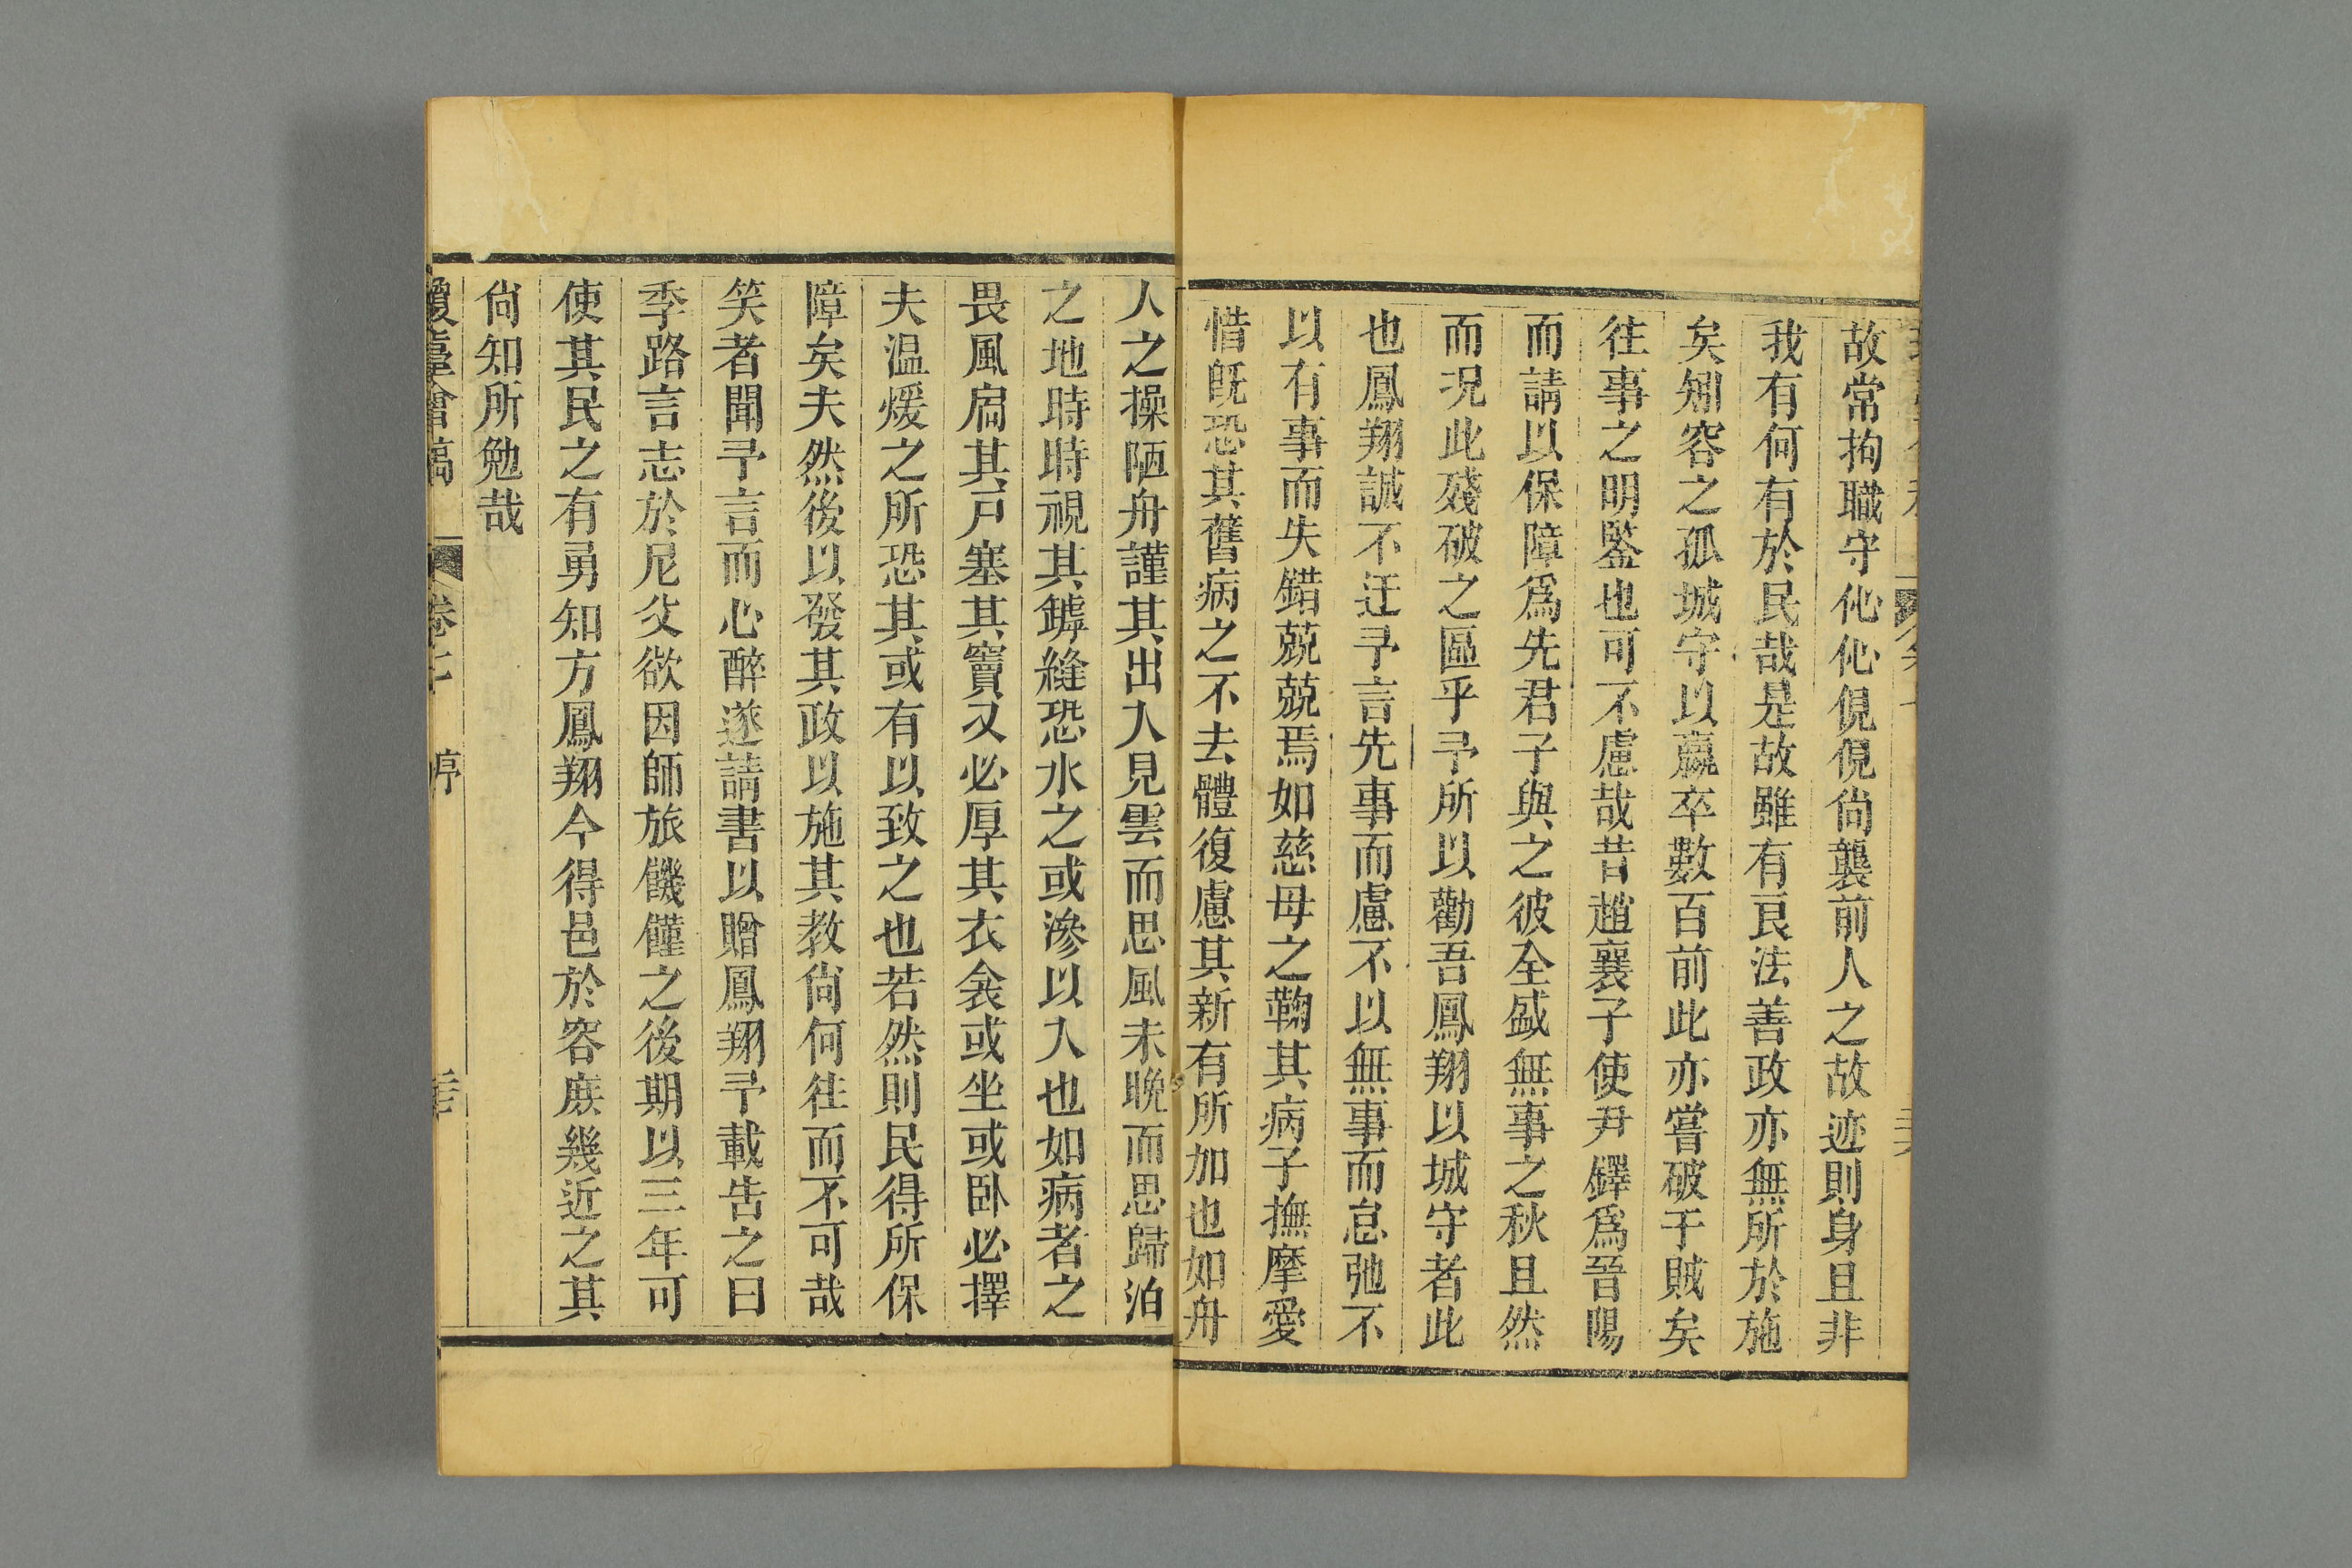 故常拘職守伈伈俔俔尙襲前人之故迹則身且非
我有何有於民哉是故雖有良法善政亦無所於施
矣矧容之孤城守以羸卒數百前此亦嘗破于賊矣
往事之明鍳也可不慮哉昔趙襄子使尹鐸爲晉陽
而請以保障爲先君子與之彼全盛無事之秋且然
而況此殘破之區乎予所以勸吾鳳翔以城守者此
也鳳翔誠不迂予言先事而慮不以無事而怠弛不
以有事而失錯兢兢焉如慈母之鞠其病子撫摩愛
惜旣恐其舊病之不去體復慮其新有所加也如舟
人之操陋舟謹其出入見雲而思風未晚而思歸泊
之地時時視其罅縫恐水之或滲以入也如病者之
畏風扄其戸塞其竇又必厚其衣衾或坐或卧必擇
夫温煖之所恐其或有以致之也若然則民得所保
障矣夫然後以發其政以施其教尙何徃而不可哉
笑者聞予言而心醉遂請書以贈鳳翔予載告之曰
季路言志於尼父欲因師旅饑饉之後期以三年可
使其民之有勇知方鳳翔今得邑於容庶幾近之其
尙知所勉哉
瓊臺會稿 卷十 序